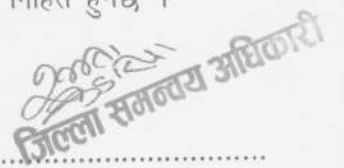 निहित हुनेछ ।
जिल्ला समन्वय अधिकारी